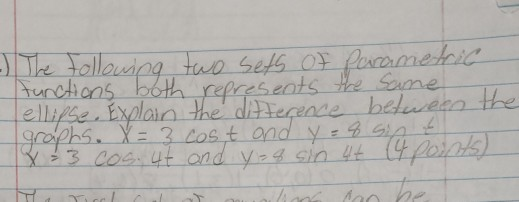 .) The following two sets of Parametric
functions both represents the same
ellipse. Explain the difference between the
graphs. X = 3 cos t and y = 8 sin t
X = 3 cos 4t and y = 8 sin 4t (4 points)
can be